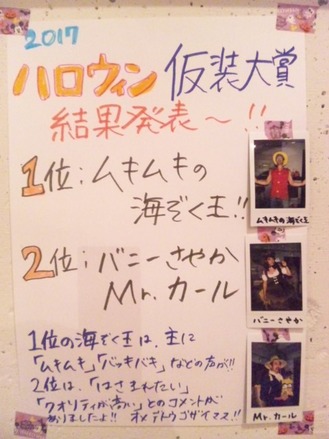 2017
ハロウィン仮装大賞
結果発表～!!
1位：ムキムキの
海ぞく王!!
2位：バニーさやか
Mr.カール
1位の海ぞく王は、主に
「ムキムキ」「バッキバキ」などの声が!!
2位は、「はさまれたい」
「クオリティが高い」とのコメントが
ありましたよ!! オメデトウゴザイマス!!
ムキムキの海ぞく王
バニーさやか
Mr.カール